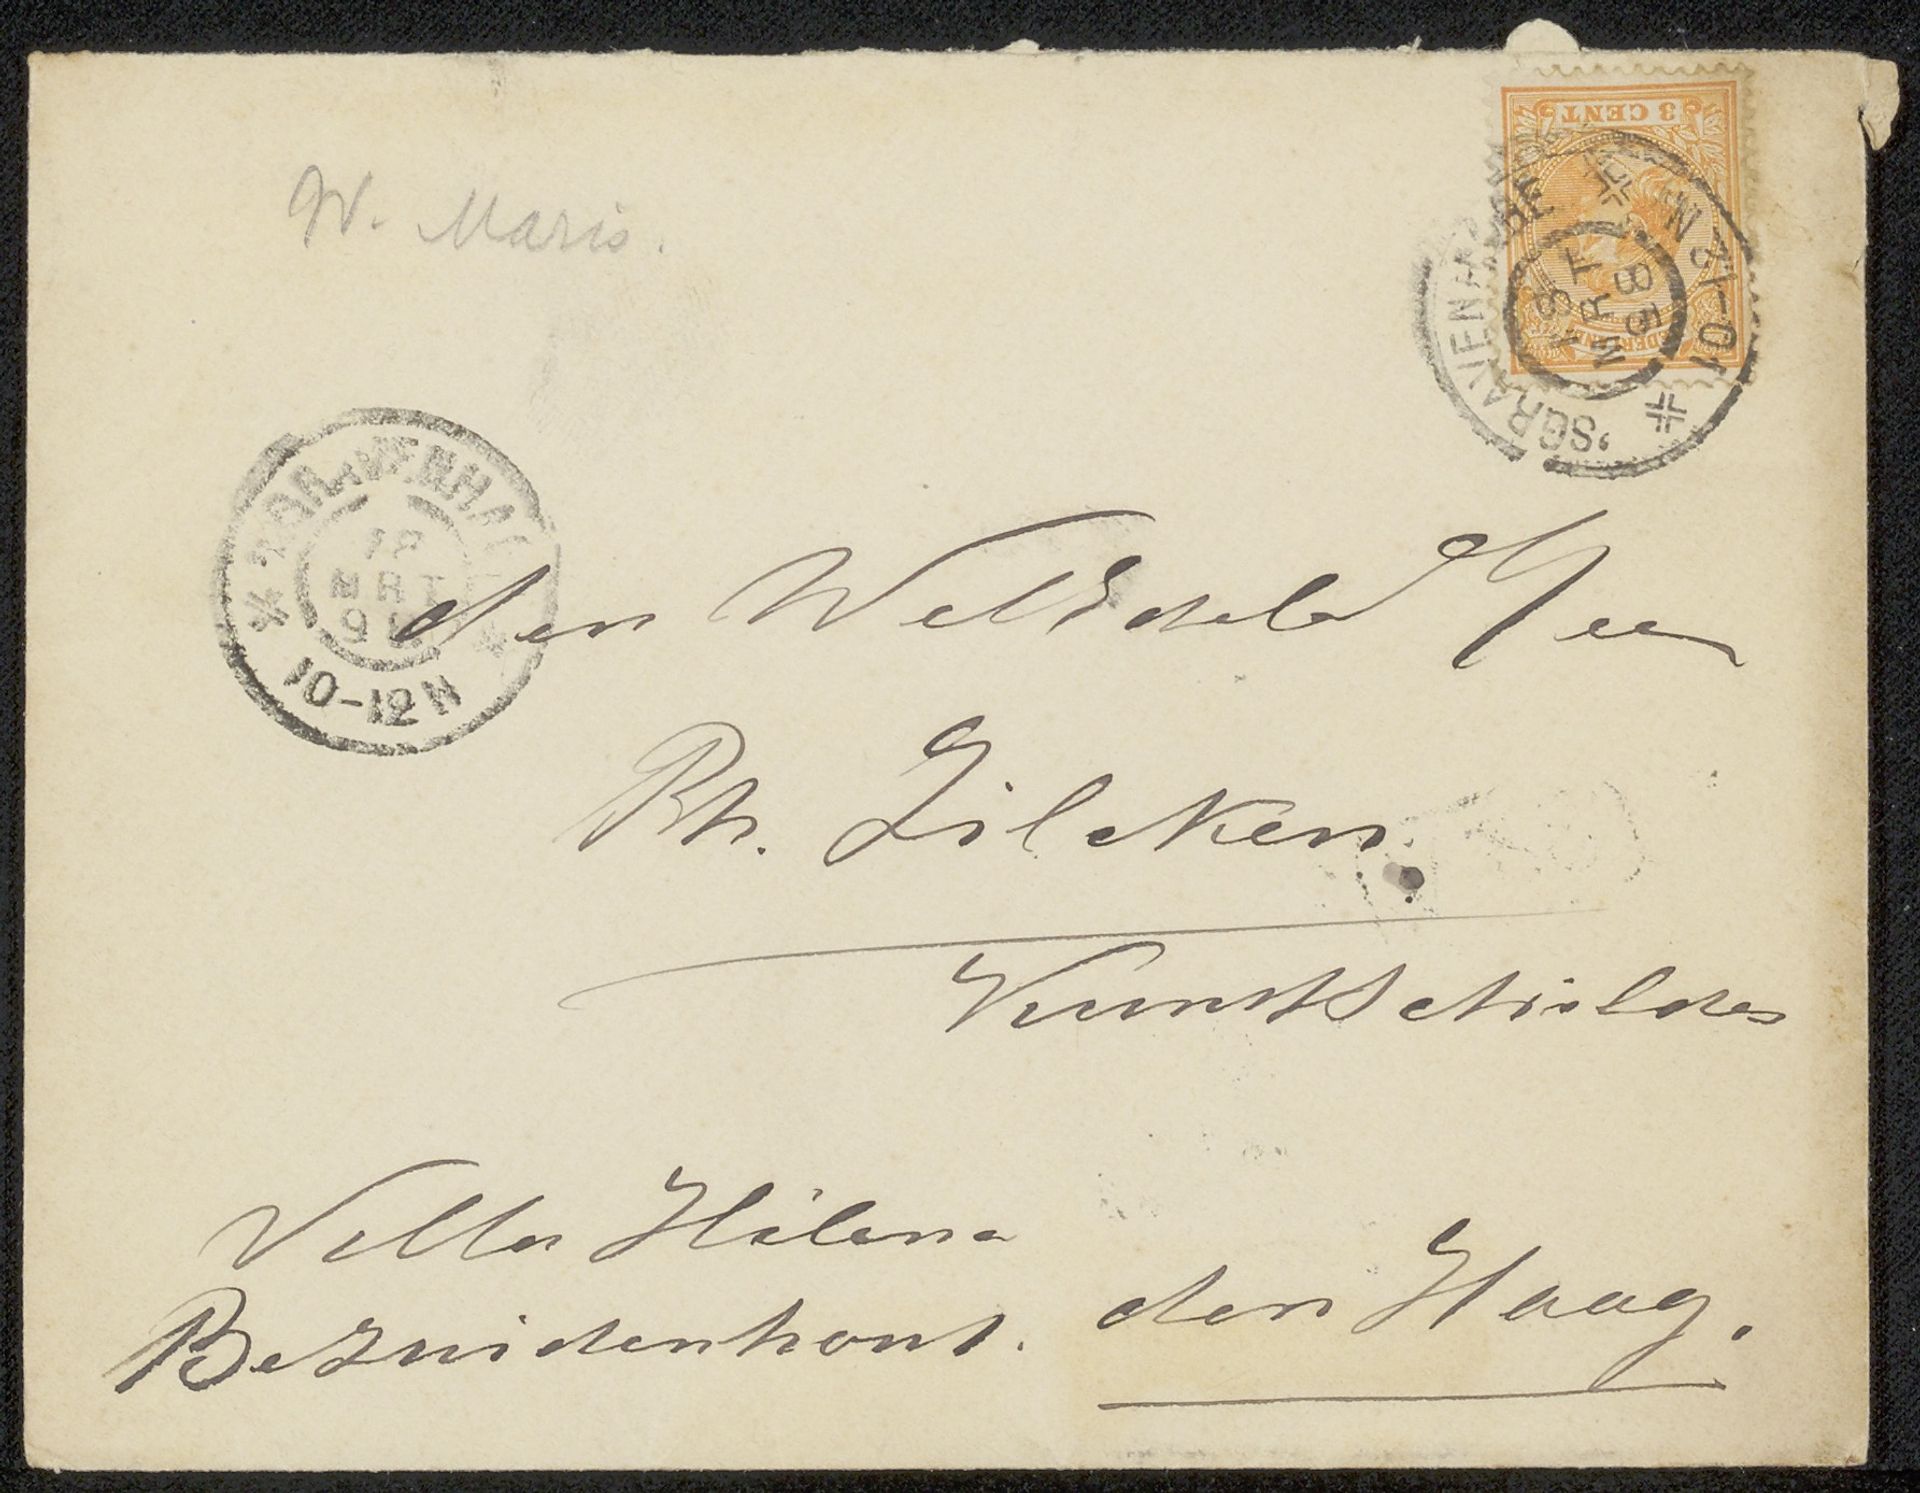 3 CENT
W. Maris.
'SGRAVENHAGE
10-12N
'SGRAVENHAGE
MRT
10-12N
den WelEdele Heer
Ph. Zilcken.
Kunstschilder
Villa Hélena
Bezuidenhout.
den Haag.